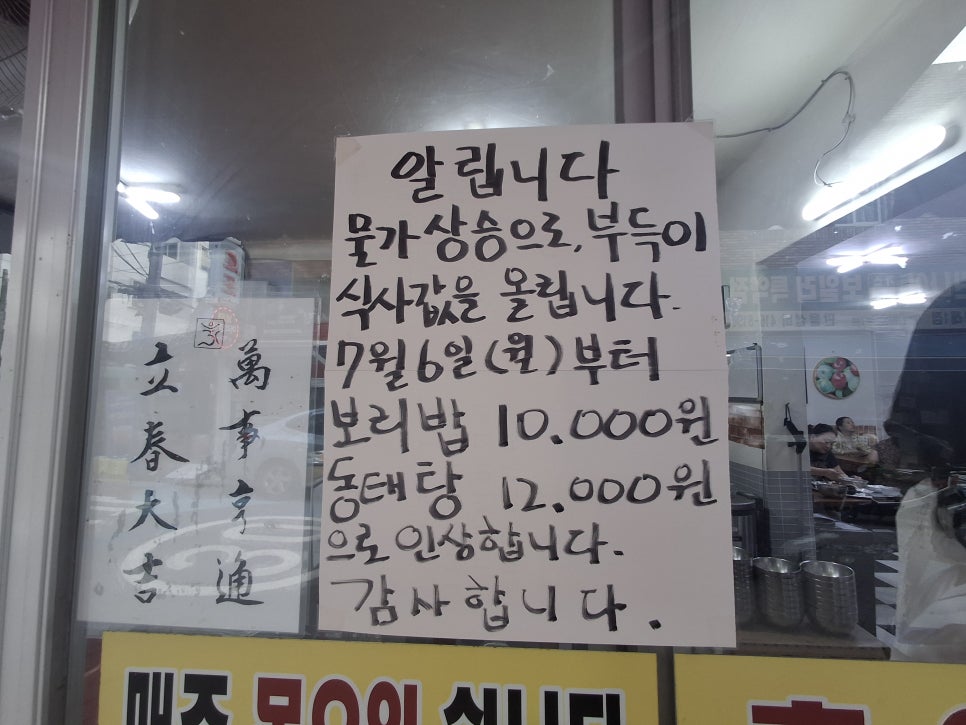 알립니다
물가 상승으로, 부득이
식사값을 올립니다.
7월 6일 (월) 부터
보리밥 10.000원
동태탕 12.000원
으로 인상합니다.
감사합니다.
立春大吉
萬事亨通
매주 목요일 쉽니다